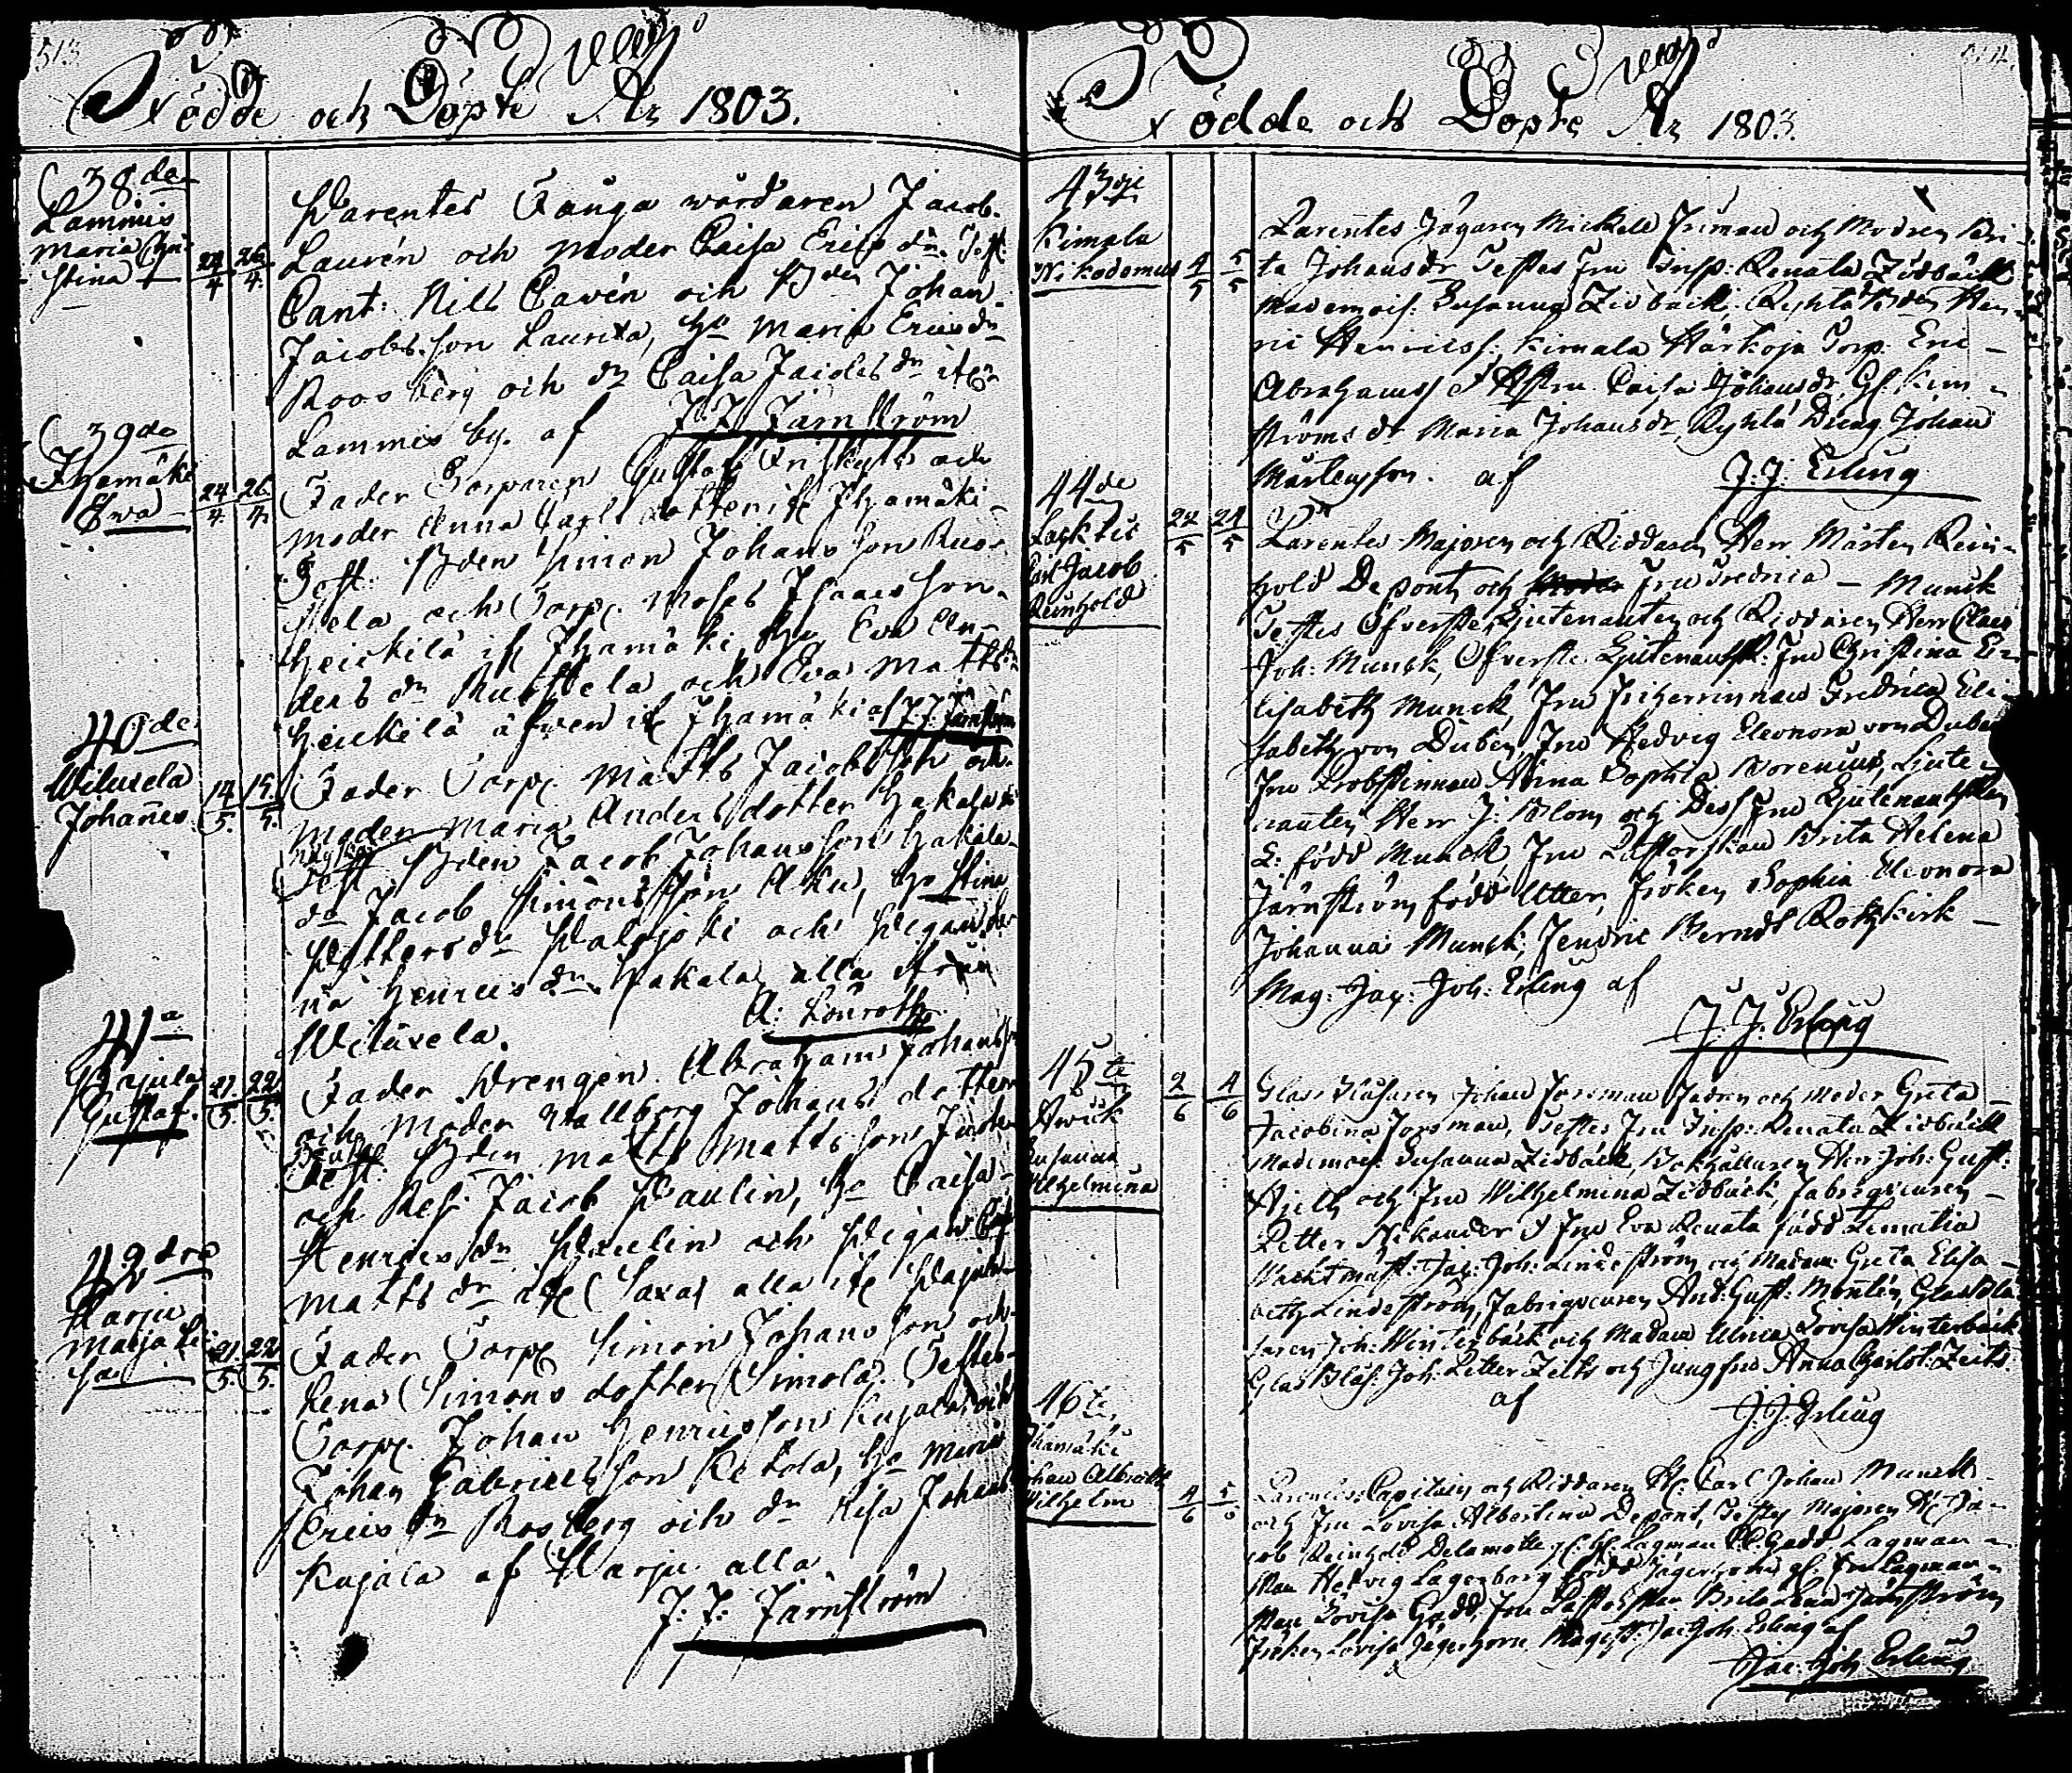 513
Födde och Döpte År 1803.
38de
Lammis
Maria Chri-
stina
24/4 26/4
Parentes Fånga wårdaren Jacob
Laurén och moder Caisa Ericsdr. Test:
Cant: Nils Cavén och Bden Johan
Jacobsson Laurila, Ho Maria Ericsdr
Roosberg och dr Caisa Jacobsdr
Lammis by. af J: J: Järnström
39de
Ihamäki
Eva
24/4 26/4
Fader Torparen Gustaf och
moder Anna Carlsdotter Ihamäki
Test: Bden Simon Johansson Rus-
tela och Torp. Moses Isaacsson
Heickilä Ihamäki, Ho Eva An-
dersdr Rustela och Eva Mattsdr
Heickilä äfven Ihamäki af J: J: Järnström
40de
Wiluxela
Johannes
14/5 15/5
Fader Torp. Matts Jacobsson och
moder Maria Andersdotter Hakala
Test Bden Jacob Johansson Hakala
dr Jacob Simonsson Aku, Ho Stina
Pettersdr Palojoki och Pigan
na Henricsdr Hakala alla ifrån
Wiluxela. A: Lönroth
41a
Pajula
Gustaf.
21/5 22/5
Fader Drengen Abraham Johansson
och moder Wallborg Johansdotter
Test: Bden Matts Mattsson
och Res: Jacob Paulin, Ho Caisa
Henricsdr Paulin och Pigan
Mattsdr Saxa alla Pajula
42dra
Harju
Maria Li-
sa
21/5 22/5
Fader Torp. Simon Johansson och
Lena Simonsdotter Simola. Testes
Torp. Johan Henricsson Kujala och
Johan Gabrielsson Ketola, Ho Maria
Ericsdr Rosberg och dr Lisa Johansdr
Kujala af Harju alla
J: J: Järnström
Födde och Döpte År 1803.
43dje
Kimala
Nikodemus
4/5 5/5
Parentes Jägaren Mickell Friman och Modren Bri-
ta Johansdr Testes Fru Insp: Renata Zidbäck
Mademois: Susanna Zidbäck, Ryhtä Bden Hen-
ric Henricss: Kimala Härkoja Torp: Eric
Abrahamss Caisa Johansdr, Gl. Kim-
ströms dr Maria Johansdr, Ryhtä Dräng Johan
Mårtensson. af J: J: Erling
44de
Laxtis
Carl Jacob
Reinhold
22/5 24/5
Parentes Majoren och Riddaren Herr Mårten Rein-
hold Depont och Fru Fredrica Munck
Testes Öfverste Ljutenanten och Riddaren Herr Claes
Joh: Munck, Öfverste Ljutenantsk: Fru Christina E-
lisabeth Munck, Fru Friherrinnan Fredrica Eli-
sabeth von Düben, Fru Hedvig Eleonora von Düben
Fru Probstinnan Anna Sophia Norenius, Ljute-
nanten Herr J: Blom och Dess Fru Ljutenantskan
E: född Munck, Fru Pastorskan Brita Helena
Järnström född Utter, Fröken Sophia Eleonora
Johanna Munck, Jendric Berndt Rotkirk
Mag: Jac: Joh: Erling af
J: J: Erling
45te
Awick
Susanna
Wilhelmina
2/6 4/6
Glas Blåsaren Johan Forsman Fadren och Moder Greta
Jacobina Forsman, Testes Fru Insp: Renata Zidbäck
Mademois: Susanna Zidbäck, Bokhållaren Herr Joh: Gust:
och Fru Wilhelmina Zidbäck, Fabriqueuren
Petter Nikander & Fru Eva Renata född Limatia
Wachtmäst: Jac: Joh: Lindeström och Madam Greta Elisa-
beth Lindeström, Fabriqueuren And: Gust: Montén, Glas Blå-
saren Joh: Winterbäck och Madam Ulrica Lovisa Winterbäck
Glas Blås: Joh: Petter Zeits och Jungfru Anna Charlot: Zeits
af J: J: Erling
46te
Ihamäki
Johan Albrecht
Wilhelm
4/6 5/6
Parentes: Capitain och Riddaren H: Carl Johan Munck
och Fru Lovisa Albertina Depont, Testes Majoren H: Ja-
cob Reinhold Delamotte, H: Lagman Gadd Lagman-
skan Hedvig Lagerborg född Jägerhorn Fru Lagman-
skan Lovisa Gadd, Fru Pastorskan Brita Lena Järnström
Fröken Lovisa Jägerhorn Magist: Jac: Joh: Erling af
Jac: Joh: Erling